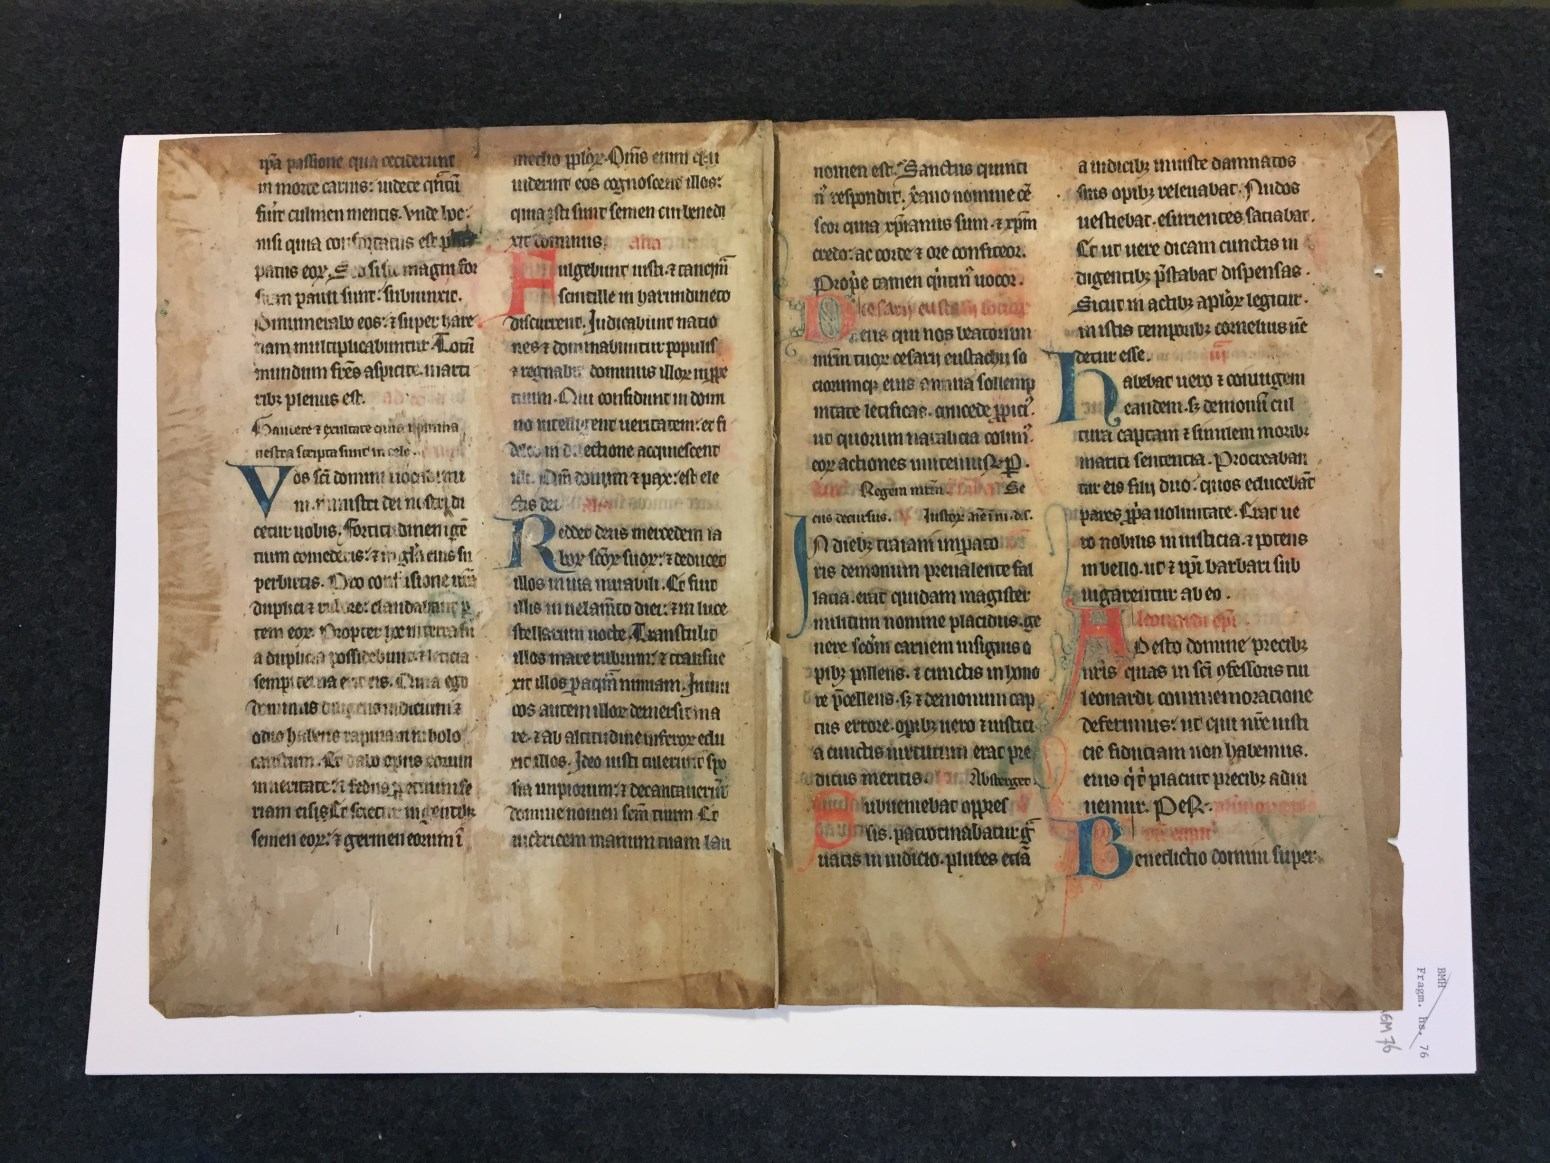 ipa passione qua ceciderunt
in morte carnis: videte qntū
fiūt culmen mentis. Vnde hoc.
nisi quia confortatus est prin
patus eoꝝ. Sed si sic magni for
sitam pauli sunt: subiunxit.
Dinumerabo eos: ⁊ super hare
nam multiplicabuntur. Totū
mundum fr̄es aspicite. marti
ribꝫ plenus est.
Gaudete ⁊ exultate quia nomina
uestra scripta sunt in celis.
Vos sc̄i domini uocabimi
ni. ministri dei nostri di
cetur uobis. Fortitudinem gē
tium comedetis: ⁊ in gl̓a eius su
perbietis. Pro confusione ur̄a
duplici ⁊ rubore: claudabunt p
tem eoꝝ. Propter hoc in terra su
a duplicia possidebunt ⁊ leticia
sempiterna erit eis. Quia ego
dominus diligens iudicium ⁊
odio habens rapinam in holo
caustum. Et dabo opus eorum
in ueritate: ⁊ fedus ꝑpetuum fe
riam eis. Et scietur in gentibꝫ
semen eoꝝ: ⁊ germen eorum ī
medio ppl̓oꝝ. Om̄s enim qui
uiderint eos cognoscent illos:
quia isti sunt semen cui benedi
xit dominus. alia
Fulgebunt iusti: ⁊ tanqm̄
scintille in harundineto
discurrent. Judicabunt natio
nes ⁊ dominabuntur populis
⁊ regnabit dominus illoꝝ in ꝑpe
tuum. Qui confidunt in domi
no intelligent ueritatem: et fi
deles in dilectione acquiescent
illi. Qm̄ donum ⁊ pax: est ele
ctis dei
Reddet deus mercedem la
boꝝ sc̄oꝝ suoꝝ: ⁊ deducet
illos in uia mirabili. Et fuit
illis in uelam̄to diei: ⁊ in luce
stellarum nocte. Transtulit
illos mare rubrum: ⁊ transue
xit illos ꝑ aqm̄ nimiam. Inimi
cos autem illoꝝ demersit in ma
re. ⁊ ab altitudine inferoꝝ edu
xit illos. Ideo iusti tulerunt spo
lia impiorum: ⁊ decantauerūt
domine nomen sc̄m tuum. Et
uictricem manum tuam lau
nomen est. Sanctus quinti
n̓ respondit. x̄ano nomine cē
seor quia xp̄ianus sum. ⁊ xp̄m
credo: ac corde ⁊ ore confiteor.
Prop̓e tamen qintin̓ uocor.
Cesarij eustachij socioꝝ
Deus qui nos beatorum
mr̄m tuoꝝ cesarij eustachij so
ciorumqꝫ eius annua sollemp
nitate letificas. ꝯcede ꝓpici̓.
ut quorum natalicia colim̓.
eoꝝ actiones imitemur. P.
Regem mr̄m. Be
atus decursus. Justoꝝ aīe ī m. dei.
In diebꝫ traiani impato
ris demonum preualente fal
lacia. erat quidam magister
militum nomine placidus. ge
nere scd̄m carnem insignis o
pibꝫ pollens. ⁊ cunctis in hono
re p̄cellens. sꝫ ⁊ demonum cap
tus errore. opibꝫ uero ⁊ iusticia
a cunctis uirtutum erat pre
ditus meritis. Absterget.
Subueniebat oppres
sis. patrocinabatur g̓
uatis in iudicio. plures etiā
a iudicibꝫ iniuste damnatos
suis opibꝫ releuabat. Nudos
uestiebat. esurientes satiabat.
Et ut uere dicam cunctis in
digentibꝫ p̄stabat dispensās.
Sicut in actibꝫ apl̓oꝝ legitur.
in istis temporibꝫ cornelius uē
detur esse. iij
Habebat uero ⁊ coniugem
eandem. sꝫ demonū cul
tura captam ⁊ similem moribꝫ
mariti sententia. Procreaban
tur eis filij duo. quos educebāt
pares ꝓp̓a uoluntate. Erat ue
ro nobilis in iusticia. ⁊ potens
in bello. ut ⁊ ipi barbari sub
iugarentur ab eo.
leonardi ep̄i
Adesto domine precibꝫ
nr̄is quas in sc̄i ꝯfessoris tui
leonardi commemoracione
deferimus: ut qui nr̄e iusti
cie fiduciam non habemus.
eius q̓ t̓ placuit precibꝫ adiu
uemur. Per.
Benedictio domini super
BMH
Fragm. hs. 76
BMH 76